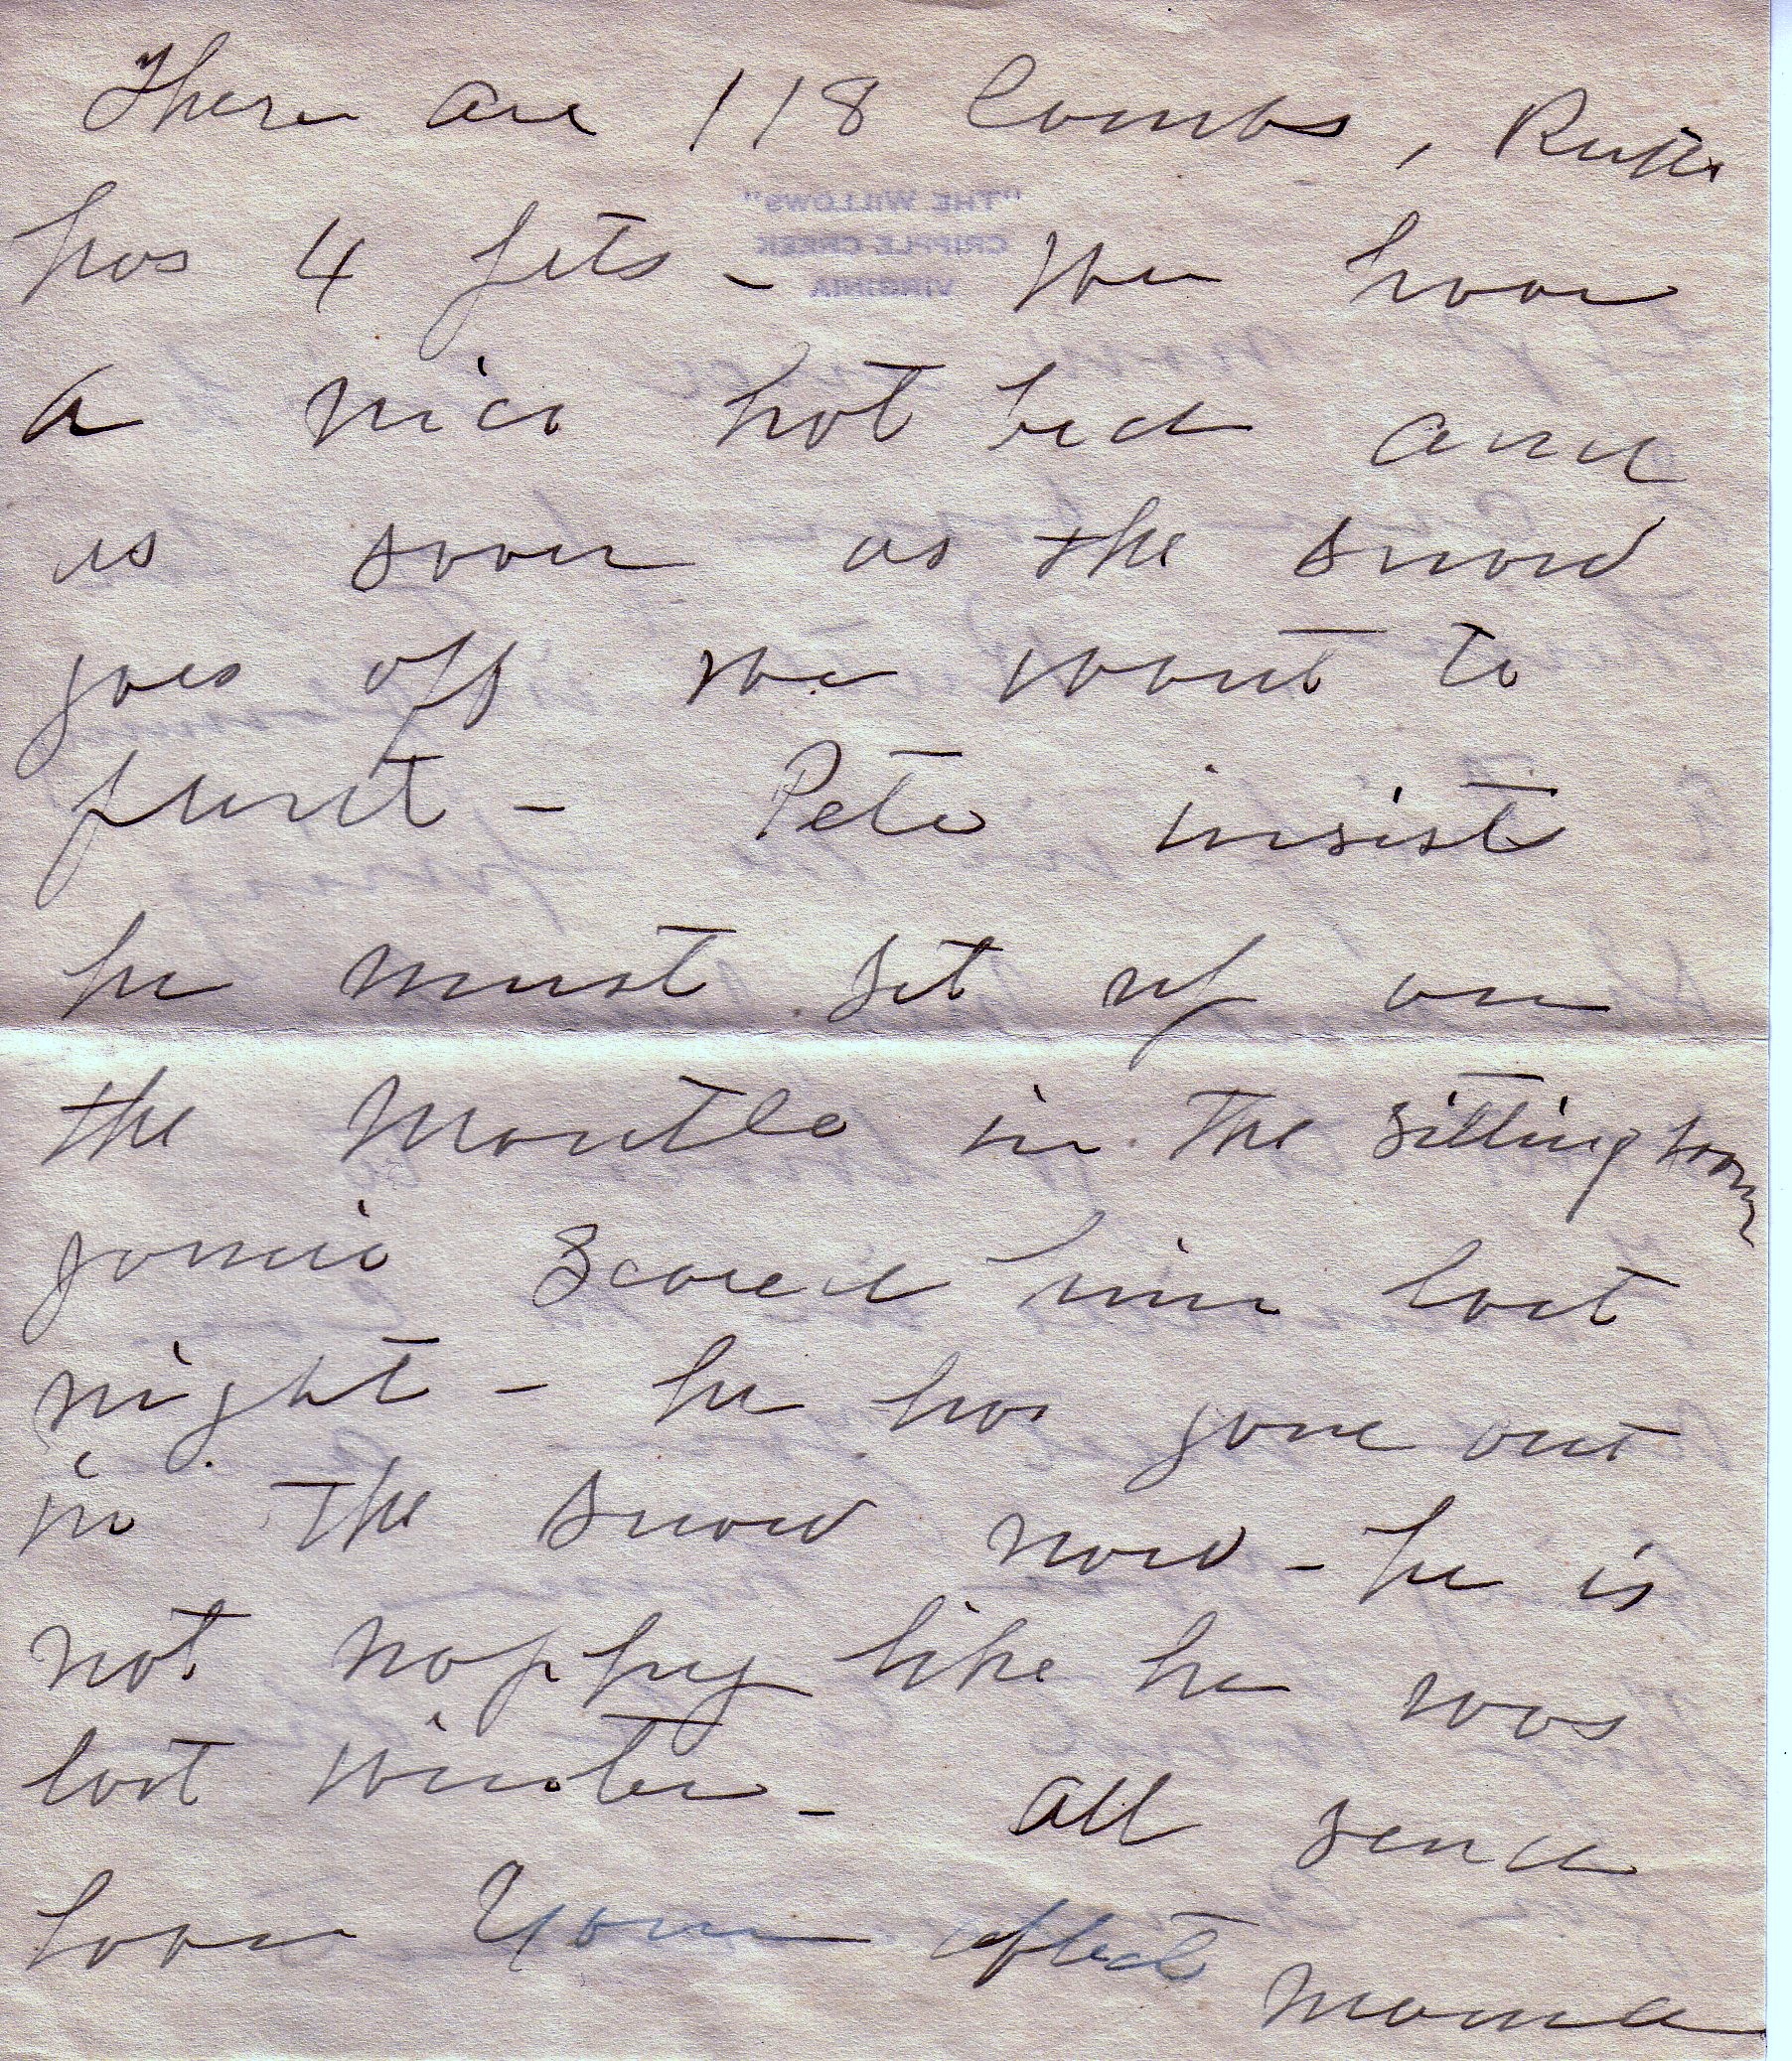 There are 118 Lambs, Ruth
"THE WILLOWS"
CRIPPLE CREEK
VIRGINIA
has 4 pets - We have
a nice hot bed and
as soon as the snow
goes off we want to
plant - Pete insist
he must set up on
the mantle in the sitting room
Jamie scared him last
night - he has gone out
in the snow now - he is
not happy like he was
last winter - All send
love Your affect Mama